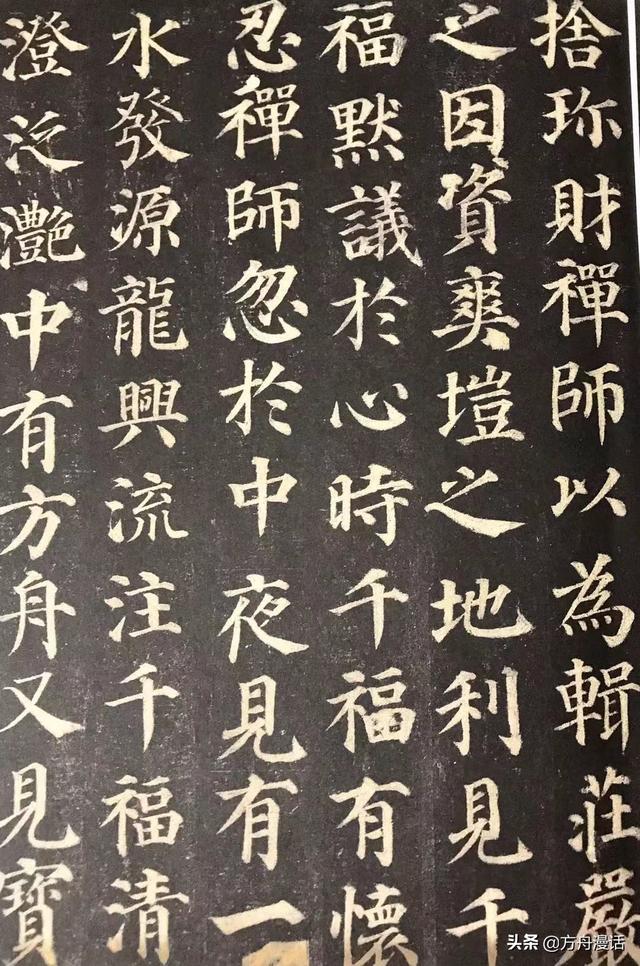 捨珎財禪師以為輯莊嚴
之因資爽塏之地利見千
福默議於心時千福有懷
忍禪師忽於中夜見有一
水發源龍興流注千福清
澄泛灧中有方舟又見寶
头条 @方舟漫话